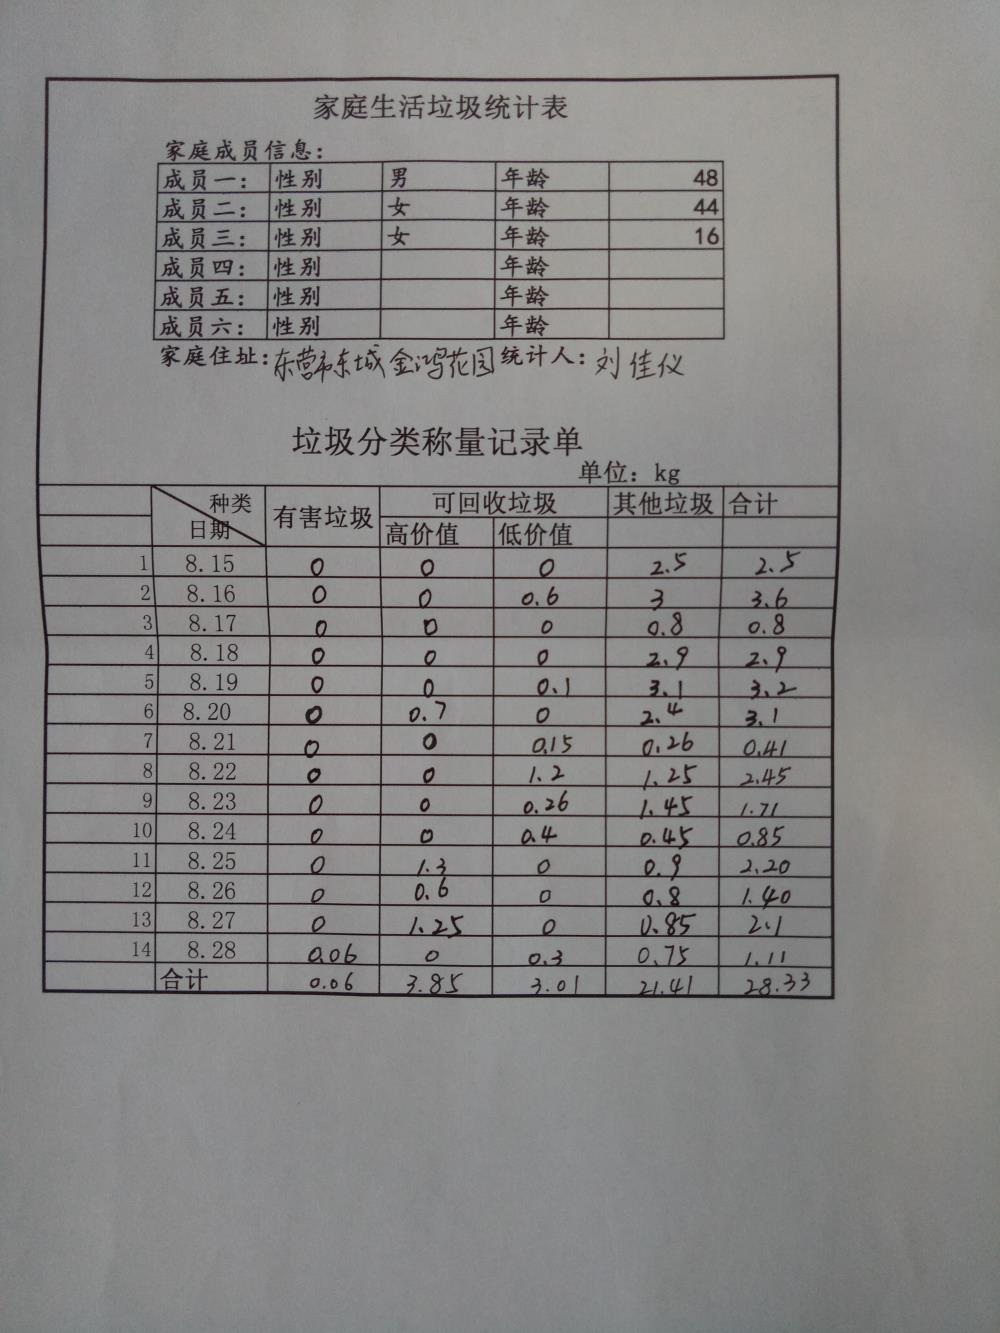 家庭生活垃圾统计表
家庭成员信息：
成员一： 性别 男 年龄 48
成员二： 性别 女 年龄 44
成员三： 性别 女 年龄 16
成员四： 性别 年龄
成员五： 性别 年龄
成员六： 性别 年龄
家庭住址：东营市东城金鸿花园 统计人：刘佳仪
垃圾分类称量记录单
单位：kg
种类 有害垃圾 可回收垃圾 其他垃圾 合计
日期 高价值 低价值
1 8.15 0 0 0 2.5 2.5
2 8.16 0 0 0.6 3 3.6
3 8.17 0 0 0 0.8 0.8
4 8.18 0 0 0 2.9 2.9
5 8.19 0 0 0.1 3.1 3.2
6 8.20 0 0.7 0 2.4 3.1
7 8.21 0 0 0.15 0.26 0.41
8 8.22 0 0 1.2 1.25 2.45
9 8.23 0 0 0.26 1.45 1.71
10 8.24 0 0 0.4 0.45 0.85
11 8.25 0 1.3 0 0.9 2.20
12 8.26 0 0.6 0 0.8 1.40
13 8.27 0 1.25 0 0.85 2.1
14 8.28 0.06 0 0.3 0.75 1.11
合计 0.06 3.85 3.01 21.41 28.33